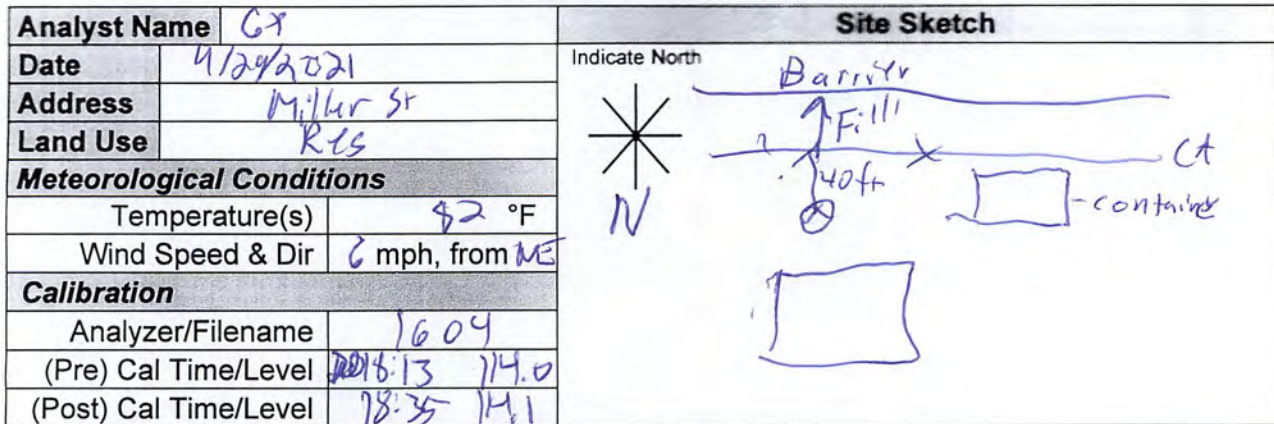 Analyst Name GX
Site Sketch
Date 4/29/2021
Address Miller St
Land Use Res
Meteorological Conditions
Temperature(s) 82 °F
Wind Speed & Dir 6 mph, from NE
Calibration
Analyzer/Filename 1604
(Pre) Cal Time/Level 18:13 114.0
(Post) Cal Time/Level 18:35 114.1
Indicate North
N
Barrier
Fill
40ft
container